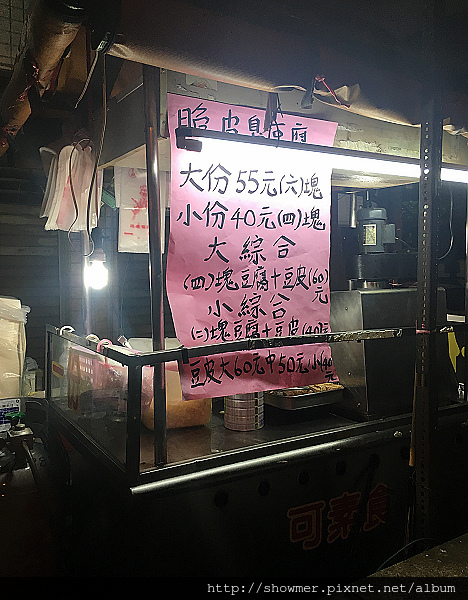 脆皮臭豆腐
大份55元(六)塊
小份40元(四)塊
大綜合
(四)塊豆腐十豆皮(60)元
小綜合
(二)塊豆腐十豆皮(40)元
豆皮大60元中50元小40元
可素食
http://showmer.pixnet.net/album